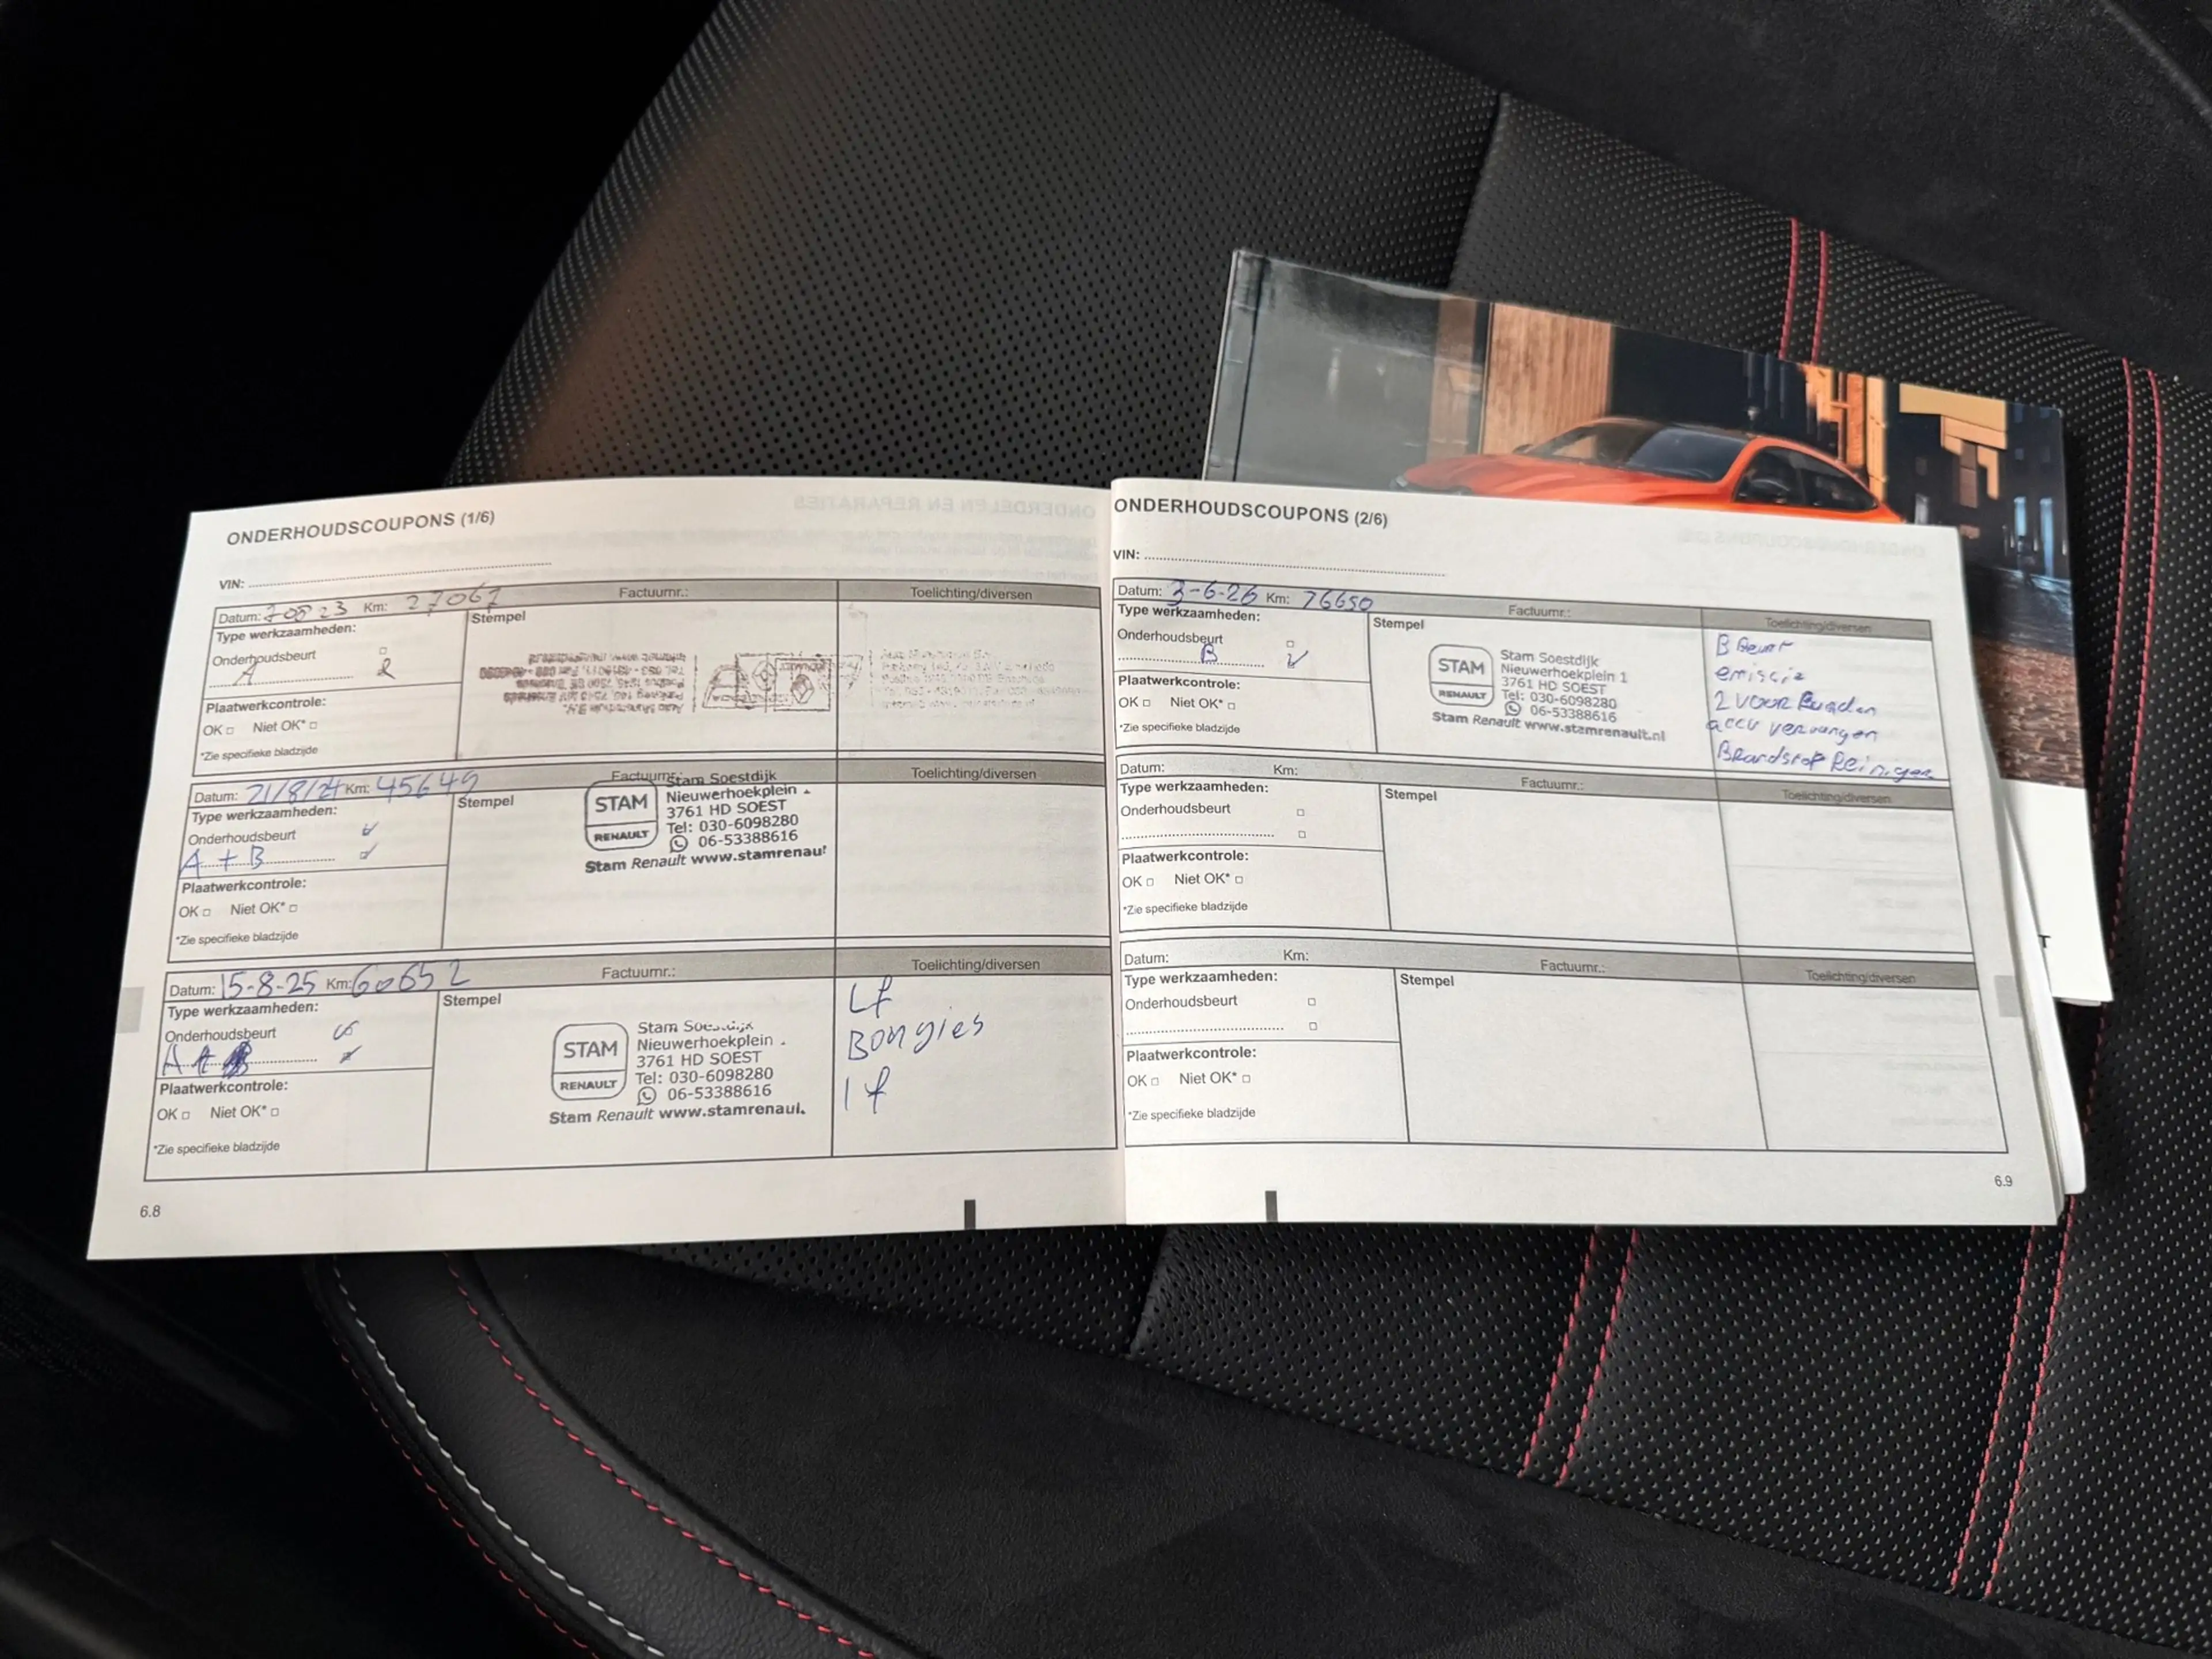 ONDERHOUDSCOUPONS (1/6)
VIN:
Datum: Km: 27067 Factuurnr.: Toelichting/diversen
Type werkzaamheden: Stempel
Onderhoudsbeurt
A
Plaatwerkcontrole:
OK Niet OK*
*Zie specifieke bladzijde
Datum: 21/8/24 Km: 45649 Factuurnr.: Toelichting/diversen
Type werkzaamheden: Stempel
Onderhoudsbeurt
A + B
Plaatwerkcontrole:
OK Niet OK*
*Zie specifieke bladzijde
STAM
RENAULT
Stam Soestdijk
Nieuwerhoekplein
3761 HD SOEST
Tel: 030-6098280
06-53388616
Stam Renault www.stamrenau
Datum: 15-8-25 Km: 60652 Factuurnr.: Toelichting/diversen
Type werkzaamheden: Stempel
Onderhoudsbeurt
A
Plaatwerkcontrole:
OK Niet OK*
*Zie specifieke bladzijde
STAM
RENAULT
Stam
Nieuwerhoekplein
3761 HD SOEST
Tel: 030-6098280
06-53388616
Stam Renault www.stamrenaul
Lf
Bongies
If
6.8
ONDERHOUDSCOUPONS (2/6)
VIN:
Datum: 3-6-26 Km: 76650 Factuurnr.: Toelichting/diversen
Type werkzaamheden: Stempel
Onderhoudsbeurt
B
Plaatwerkcontrole:
OK Niet OK*
*Zie specifieke bladzijde
STAM
RENAULT
Stam Soestdijk
Nieuwerhoekplein 1
3761 HD SOEST
Tel: 030-6098280
06-53388616
Stam Renault www.stamrenault.nl
B Beurt
emissie
2 voor Banden
accu vervangen
Brandstof Reiniger
Datum: Km: Factuurnr.: Toelichting/diversen
Type werkzaamheden: Stempel
Onderhoudsbeurt
Plaatwerkcontrole:
OK Niet OK*
*Zie specifieke bladzijde
Datum: Km: Factuurnr.: Toelichting/diversen
Type werkzaamheden: Stempel
Onderhoudsbeurt
Plaatwerkcontrole:
OK Niet OK*
*Zie specifieke bladzijde
6.9